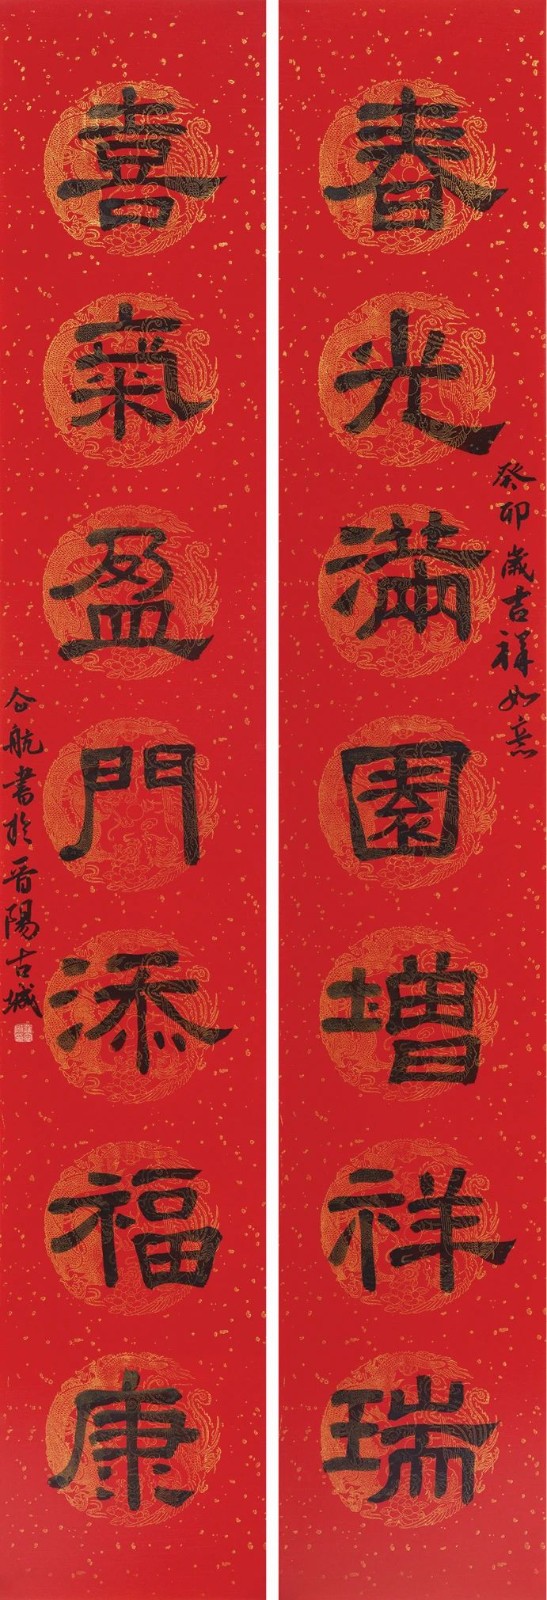 春光滿園增祥瑞
癸卯歲吉祥如意
喜氣盈門添福康
航書於晋陽古城